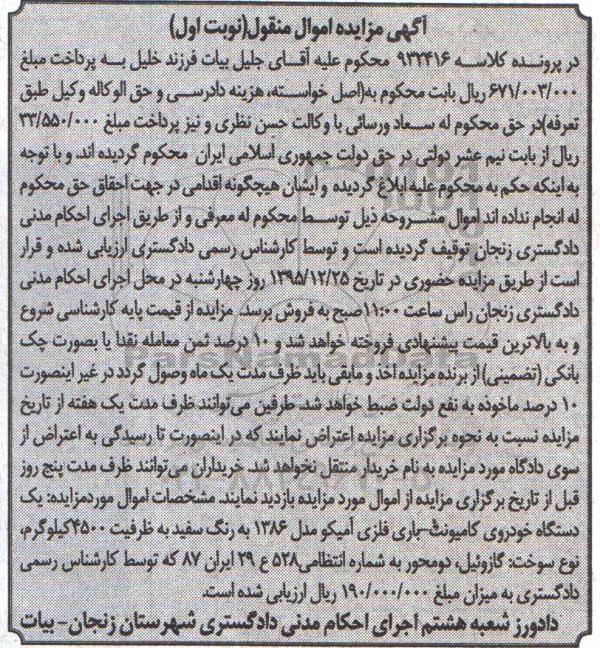 آگهی مزایده اموال منقول(نوبت اول)
در پرونده کلاسه ۹۳۲۴۱۶ محکوم علیه آقای جلیل بیات فرزند خلیل به پرداخت مبلغ
۶۷۱/۰۰۳/۰۰۰ ریال بابت محکوم به(اصل خواسته، هزینه دادرسی و حق الوکاله وکیل طبق
تعرفه)در حق محکوم له سعاد ورسائی با وکالت حسن نظری و نیز پرداخت مبلغ ۳۳/۵۵۰/۰۰۰
ریال از بابت نیم عشر دولتی در حق دولت جمهوری اسلامی ایران محکوم گردیده اند. و با توجه
به اینکه حکم به محکوم علیه ابلاغ گردیده و ایشان هیچگونه اقدامی در جهت احقاق حق محکوم
له انجام نداده اند اموال مشروحه ذیل توسط محکوم له معرفی و از طریق اجرای احکام مدنی
دادگستری زنجان توقیف گردیده است و توسط کارشناس رسمی دادگستری ارزیابی شده و قرار
است از طریق مزایده حضوری در تاریخ ۱۳۹۵/۱۲/۲۵ روز چهارشنبه در محل اجرای احکام مدنی
دادگستری زنجان راس ساعت ۱۱:۰۰صبح به فروش برسد. مزایده از قیمت پایه کارشناسی شروع
و به بالاترین قیمت پیشنهادی فروخته خواهد شد و ۱۰ درصد ثمن معامله نقدا یا بصورت چک
بانکی (تضمینی) از برنده مزایده اخذ و مابقی باید ظرف مدت یک ماه وصول گردد در غیر اینصورت
۱۰ درصد ماخوذه به نفع دولت ضبط خواهد شد. طرفین می‌توانند ظرف مدت یک هفته از تاریخ
مزایده نسبت به نحوه برگزاری مزایده اعتراض نمایند که در اینصورت تا رسیدگی به اعتراض از
سوی دادگاه مورد مزایده به نام خریدار منتقل نخواهد شد. خریداران می‌توانند ظرف مدت پنج روز
قبل از تاریخ برگزاری مزایده از اموال مورد مزایده بازدید نمایند. مشخصات اموال موردمزایده: یک
دستگاه خودروی کامیونت-باری فلزی آمیکو مدل ۱۳۸۶ به رنگ سفید به ظرفیت ۴۵۰۰کیلوگرم،
نوع سوخت: گازوئیل، دومحور به شماره انتظامی۵۲۸ ع ۲۹ ایران ۸۷ که توسط کارشناس رسمی
دادگستری به میزان مبلغ ۱۹۰/۰۰۰/۰۰۰ ریال ارزیابی شده است.
دادورز شعبه هشتم اجرای احکام مدنی دادگستری شهرستان زنجان- بیات
ParsNamadData